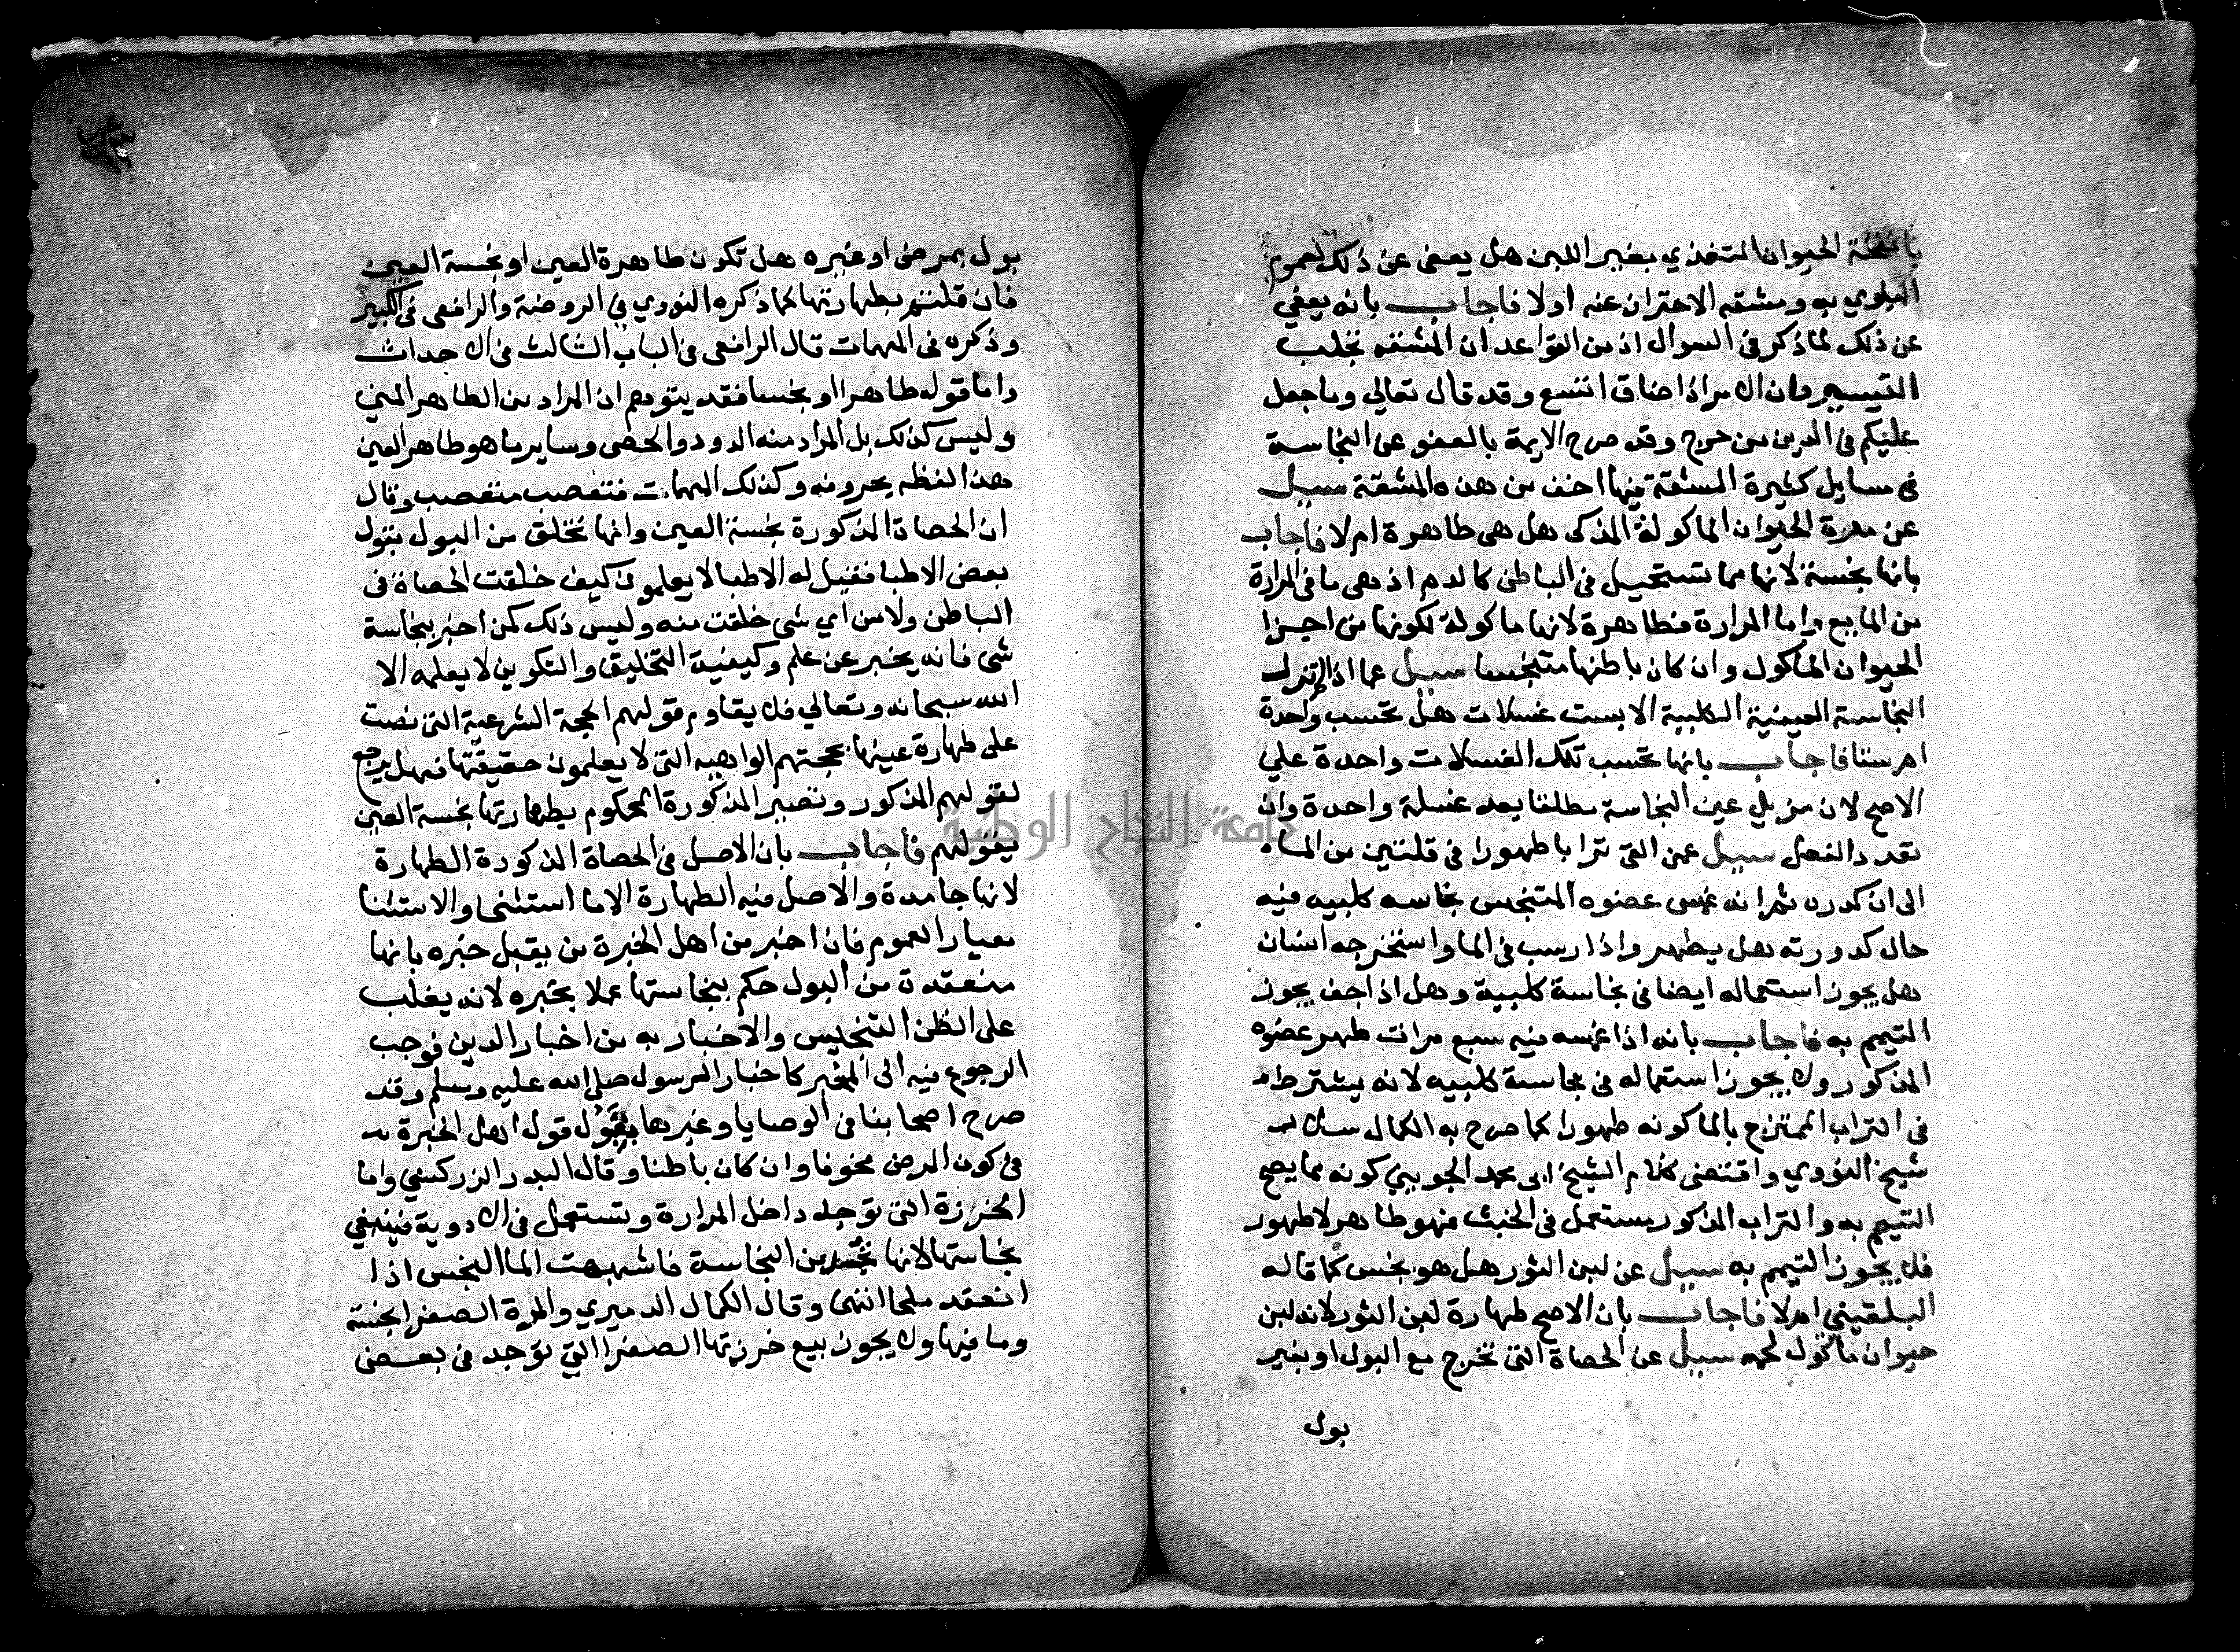 بانفحة الحيوان المتغذي بغير اللبن هل يعفى عن ذلك لعموم
البلوي به ومشقه الاحتراز عنه اولا فاجاب بانه يعفي
عن ذلك لما ذكر في السوال اذ من القواعد ان المشقه تجلب
التيسير وان الامر اذا ضاق اتسع وقد قال تعالي وما جعل
عليكم في الدين من حرج وقد صرح الايمة بالعفو عن النجاسة
في مسايل كثيرة المشقة فيها اخف من هذه المشقة سيل
عن مرة الحيوان الماكولة المذكى هل هى طاهرة ام لا فاجاب
بانها نجسة لانها مما تستحيل في الباطن كالدم اذ هى ما في المرارة
من المايع واما المرارة فطاهرة لانها ماكولة لكونها من اجزا
الحيوان الماكول وان كان باطنها متنجسا سيل عما اذا لم تزل
النجاسة العينية الكلبية الا بست غسلات هل تحسب واحدة
ام ستا فاجاب بانها تحسب تلك الغسلات واحدة علي
الاصح لان مزيل عين النجاسة مطلقا يعد غسلة واحدة وان
تعدد الفعل سيل عمن القى ترابا طهورا في قلتين من الماء
الى ان كدره ثم انه غمس عضوه المتنجس بنجاسه كلبيه فيه
حال كدورته هل يطهر واذا رسب في الما واستخرجه انسان
هل يجوز استعماله ايضا في نجاسة كلبية وهل اذا جف يجوز
التيمم به فاجاب بانه اذا غمسه فيه سبع مرات طهر عضوه
المذكور ولا يجوز استعماله في نجاسة كلبيه لانه يشترط
في التراب الممتزج بالما كونه طهورا كما صرح به الكمال سلار
شيخ النووي واقتضى كلام الشيخ ابى محمد الجويني كونه مما يصح
التيمم به والتراب المذكور مستعمل في الخبث فهو طاهر لا طهور
فلا يجوز التيمم به سيل عن لبن الثور هل هو نجس كما قاله
البلقيني ام لا فاجاب بان الاصح طهارة لبن الثور لانه لبن
حيوان ماكول لحمه سيل عن الحصاة التى تخرج مع البول او بغير
بول
بول بمرض او غيره هل تكون طاهرة العين او نجسة العين
فان قلتم بطهارتها كما ذكره النووي في الروضة والرافعى في الكبير
وذكره في المهمات قال الرافعى في الباب الثالث في الاحداث
واما قوله طاهرا او نجسا فقد يتوهم ان المراد من الطاهر المني
وليس كذلك بل المراد منه الدود والحصى وساير ما هو طاهر العين
هذا لفظه بحروفه وكذلك المهمات فتعصب متعصب وقال
ان الحصاة المذكورة نجسة العين وانها تخلق من البول بقول
بعض الاطبا فقيل له الاطبا لا يعلمون كيف خلقت الحصاة في
الباطن ولا من اي شى خلقت منه وليس ذلك كمن اخبر بنجاسة
شى فانه يخبر عن علم وكيفية التخليق والتكوين لا يعلمه الا
الله سبحانه وتعالي فلا يقاوم قولهم الحجة الشرعية التى نصت
على طهارة عينها بحجتهم الواهيه التى لا يعلمون حقيقتها فهل يرجع
لقولهم المذكور وتصير المذكورة المحكوم بطهارتها نجسة العين
بقولهم فاجاب بان الاصل في الحصاة المذكورة الطهارة
لانها جامدة والاصل فيه الطهارة الا ما استثنى والاستثنا
معيار العموم فان اخبر من اهل الخبرة من يقبل خبره بانها
منعقدة من البول حكم بنجاستها عملا بخبره لانه يغلب
على الظن التنجيس والاخبار به من اخبار الدين فوجب
الرجوع فيه الى المخبر كاخبار الرسول صلى الله عليه وسلم وقد
صرح اصحابنا في الوصايا وغيرها بقول قول اهل الخبرة
في كون المرض مخوفا وان كان باطنا وقال البدر الزركشي واما
الخرزة التى توجد داخل المرارة وتستعمل في الادوية فينبغي
نجاستها لانها من النجاسة فاشبهت الما النجس اذا
انعقد ملحا انتهى وقال الكمال الدميري والمرة الصفرا نجسة
وما فيها ولا يجوز بيع خرزتها الصفرا التي توجد في بعض
جامعة النجاح الوطنية